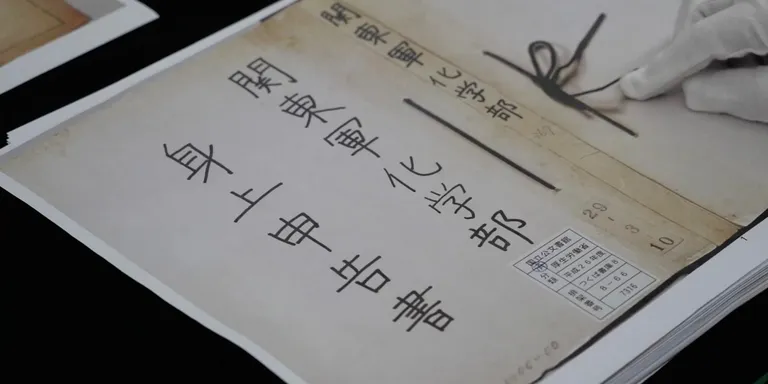 関東軍化学部
関東軍化学部
身上申告書
29.3
10
国立公文書館
分類
厚生労働省
平成25年度
つくば書庫8
8-66
排架番号
7316